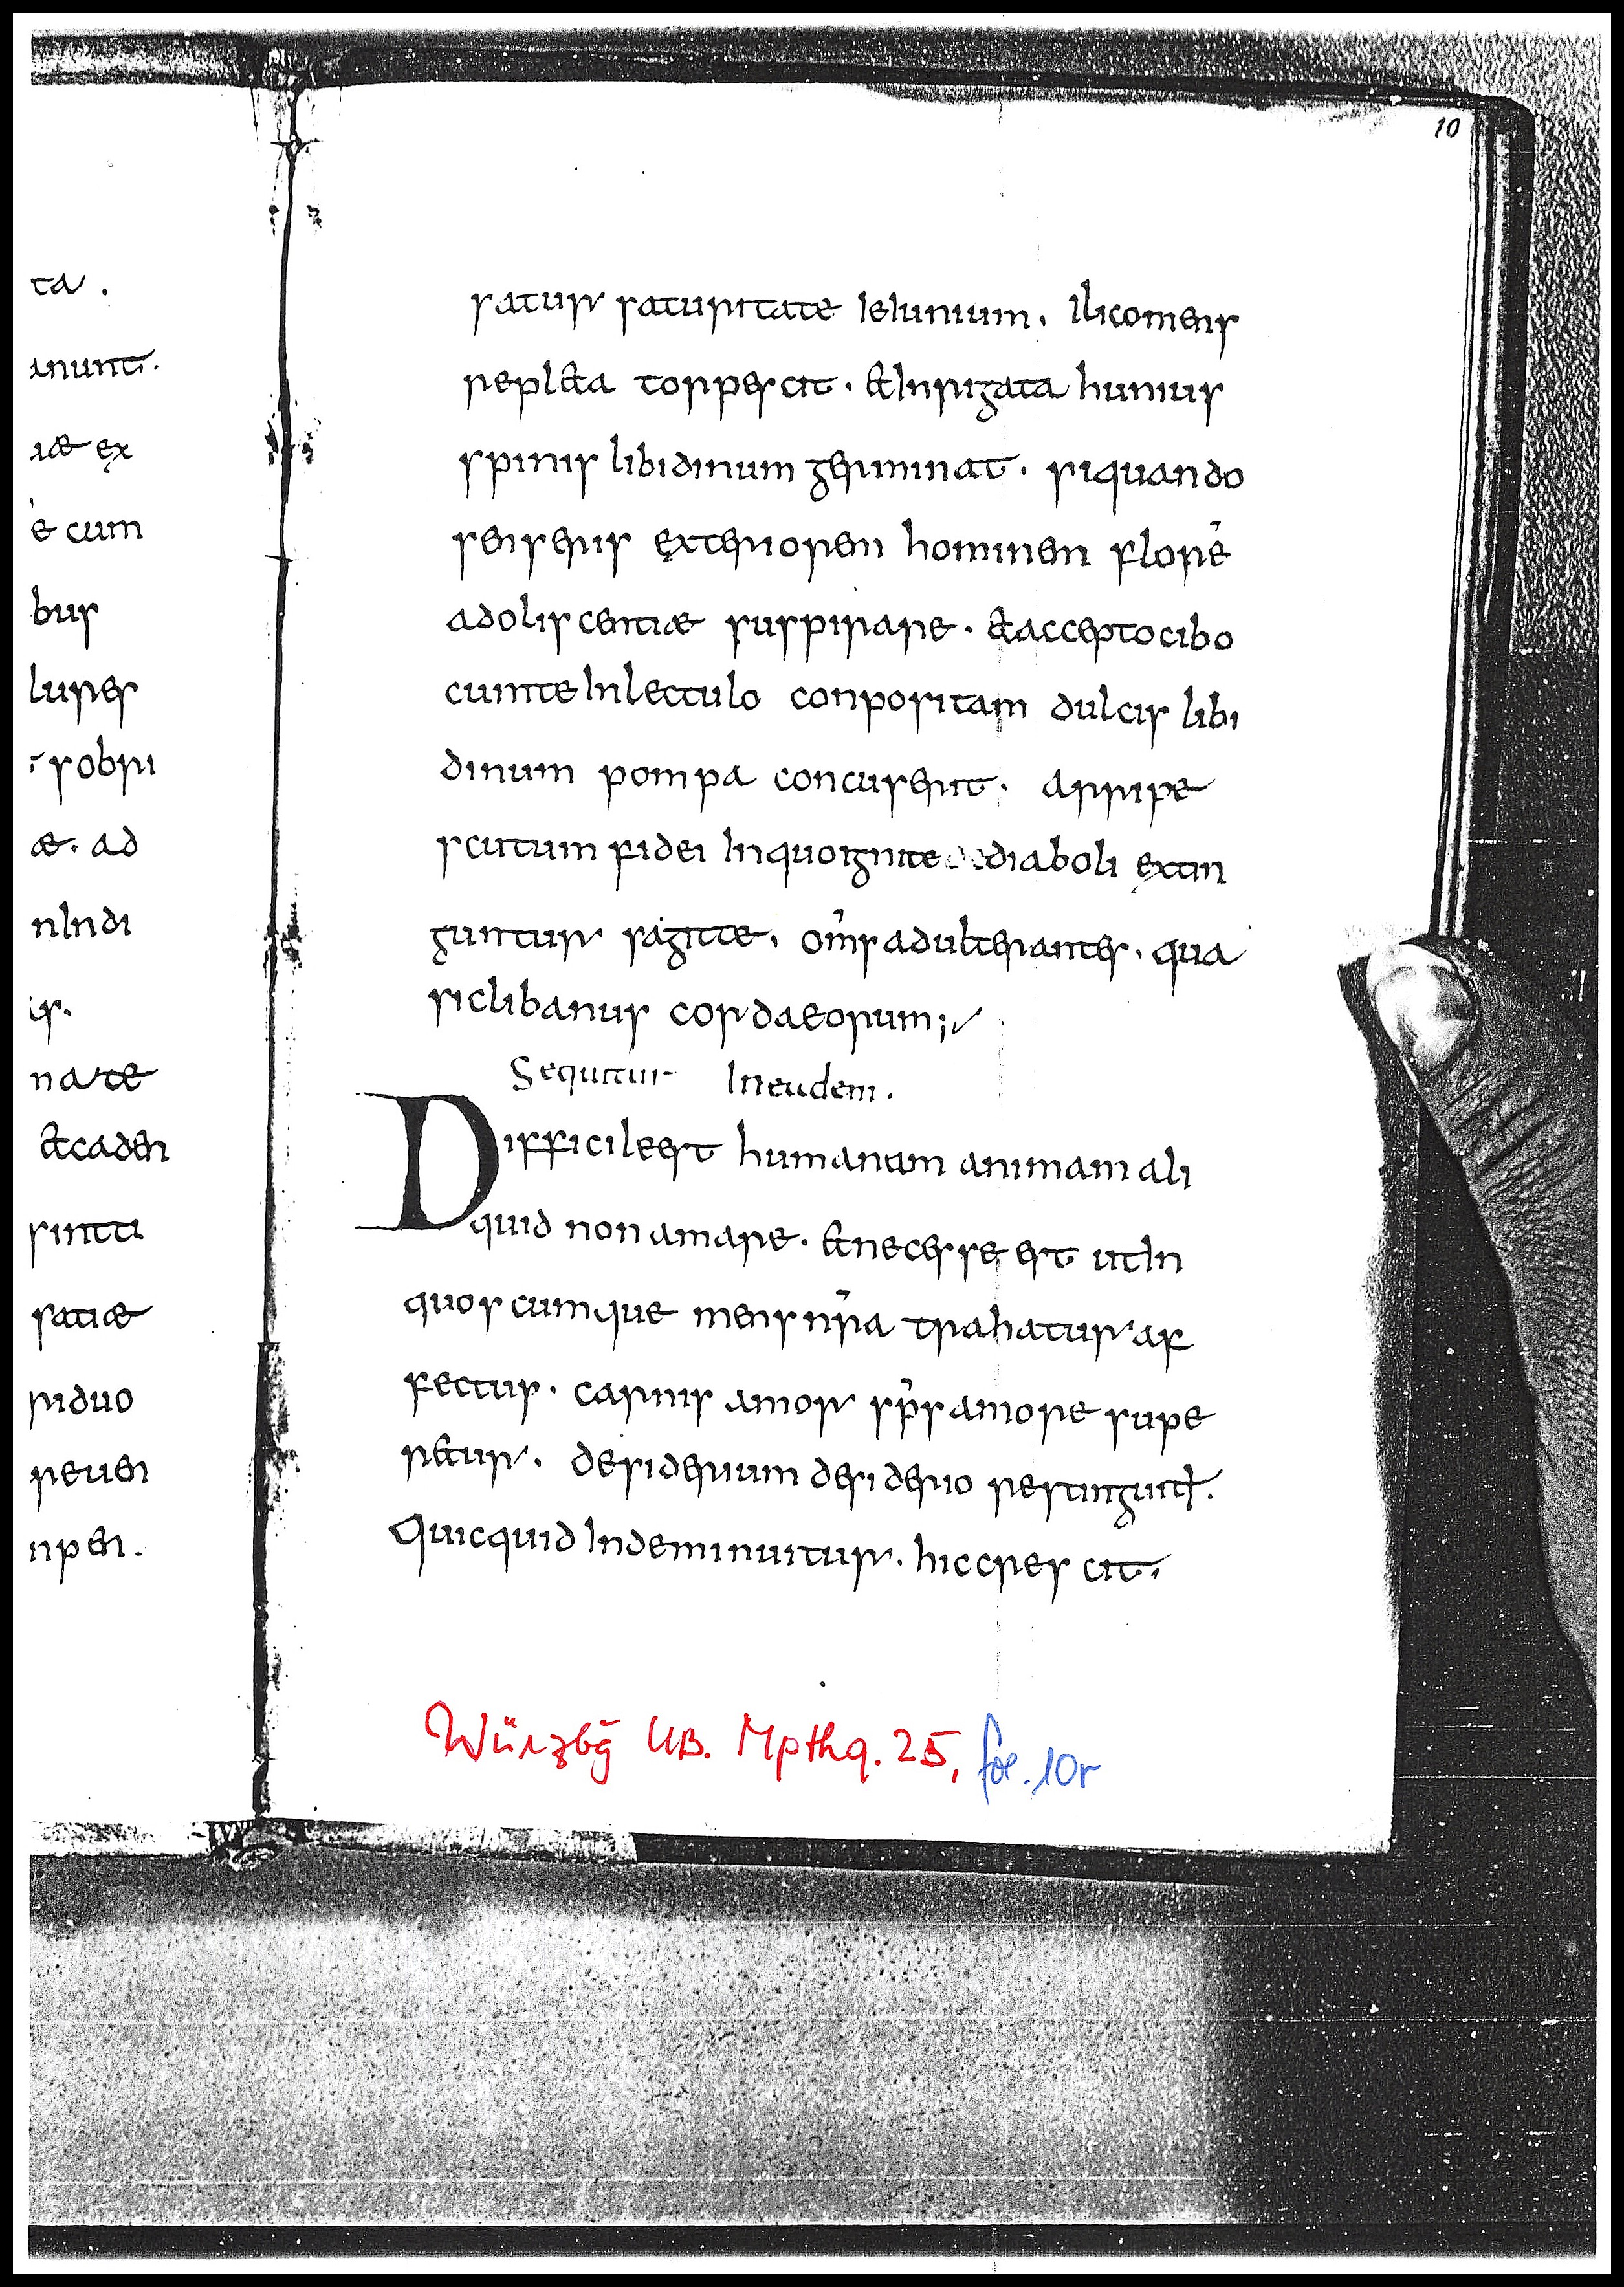 10
ta.
anunt.
iæ ex
e cum
bus
lures
sobri
æ. ad
nIndi
is.
nate
&caden
sintti
satiæ
riduo
reuen
npen.
satur saturitate Ieiunium. Ilicomens
repl&a torpescit. &Inrigata humus
spinis libidinum germinat. siquando
senseris exteriorem hominem flore
adoliscentiæ suspirare. &acceptocibo
cumteInlectulo conpositam dulcis libi
dinum pompa concuserit. arripe
scutum fidei Inquoignite diaboli extin
guntur sagitte. om̅s adulterantes. qua
siclibanus cordaeorum;
Sequitur Ineudem.
Difficileest humanam animam ali
quid non amare. &necesse est utIn
quoscumque mens nr̅a trahatur af
fectus. carnis amor sp̅s amore supe
r&ur. desiderium desiderio restinguit̅.
Quicquid Indeminuitur. hiccrescit.
Würzbg UB. Mpthq. 25, fol. 10r